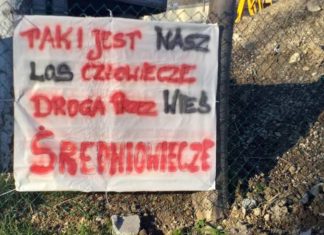 TAKI JEST NASZ
LOS CZŁOWIECZE
DROGA PRZEZ WIEŚ
ŚREDNIOWIECZE